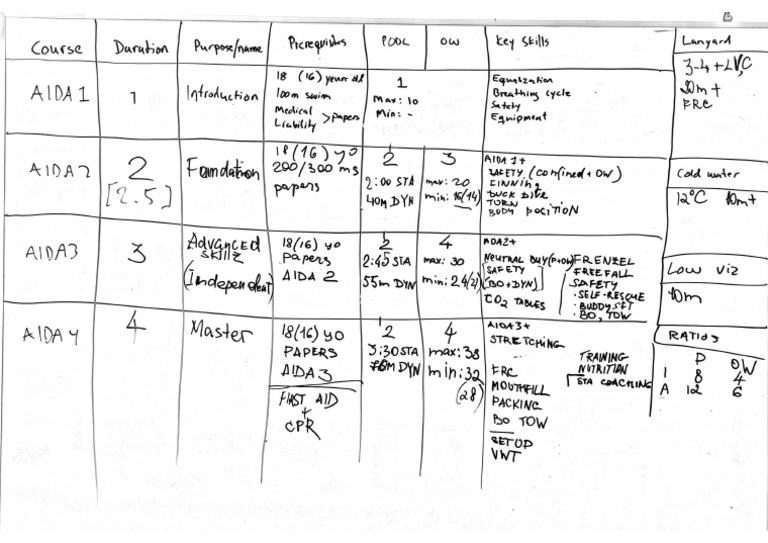 Course Duration Purpose/name Prerequisites POOL OW Key Skills Lanyard
AIDA1 1 Introduction
18 (16) year old
100m swim
Medical
Liability > papers
1
Max: 10
Min: -
Equalization
Breathing cycle
Safety
Equipment
3-4 + LV, C
20m +
FRC
AIDA2
2
[2.5]
Foundation
18(16) yo
200/300 ms
papers
2
2:00 STA
40m DYN
3
max: 20
min: 16(14)
AIDA 1+
SAFETY (confined + OW)
FINNING
DUCK DIVE
TURN
BODY POSITION
Cold water
12°C 10m+
AIDA3
3
Advanced
skillz
(Independent)
18(16) yo
PAPERS
AIDA 2
2
2:45 STA
55m DYN
4
max: 30
min: 24(2)
AIDA2+
NEUTRAL BUY(P+OW)
SAFETY
(BO+DYN)
CO2 TABLES
FRENZEL
FREEFALL
SAFETY
·SELF-RESCUE
·BUDDY SET
·BO, TOW
Low viz
10m
AIDA4
4
Master
18(16) yo
PAPERS
AIDA3
FIRST AID
+
CPR
2
3:30 STA
70M DYN
4
max: 38
min: 32
(28)
AIDA3+
STRETCHING
...
FRC
MOUTHFILL
PACKING
BO TOW
SETUP
VWT
TRAINING
NUTRITION
STA COACHING
RATIOS
P OW
1 8 4
A 12 6